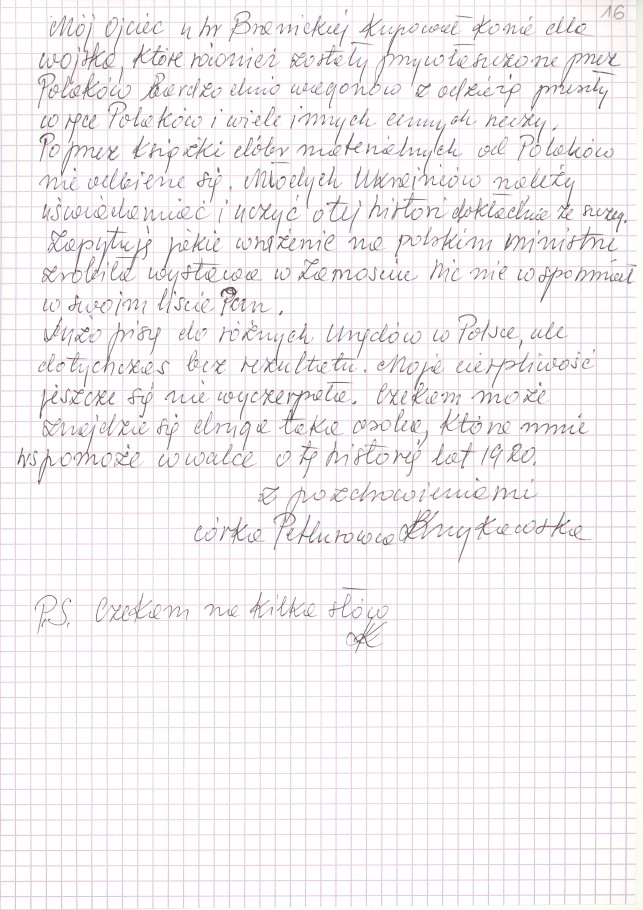 16
Mój Ojciec u hr Branickiej kupował konie dla
wojska, które również zostały przywłaszczone przez
Polaków Bardzo dużo wagonów z odzieżą przeszły
w ręce Polaków i wiele innych cennych rzeczy.
Poprzez książki dóbr materialnych od Polaków
nie odbierze się. Młodych Ukraińców należy
uświadamiać i uczyć o tej histori dokładnie ze szczeg.
Zapytuję jakie wrażenie na polskim ministrze
zrobiła wystawa w Zamościu Nic nie wspomniał
w swoim liście Pan.
Dużo piszę do różnych Urzędów w Polsce, ale
dotychczas bez rezultatu. Moja cierpliwość
jeszcze się nie wyczerpała. Czekam może
znajdzie się druga taka osoba, która mnie
wspomoże w walce o tę historię lat 1920.
z pozdrowieniami
córka Petlurowca
P.S. Czekam na kilka słów
AK